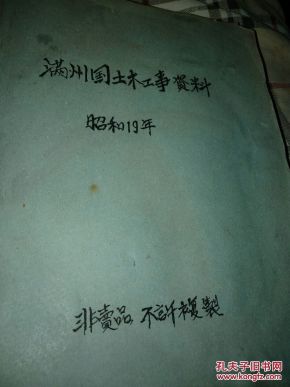 满州国土木工事資料
昭和19年
非賣品 不許複製
孔夫子旧书网